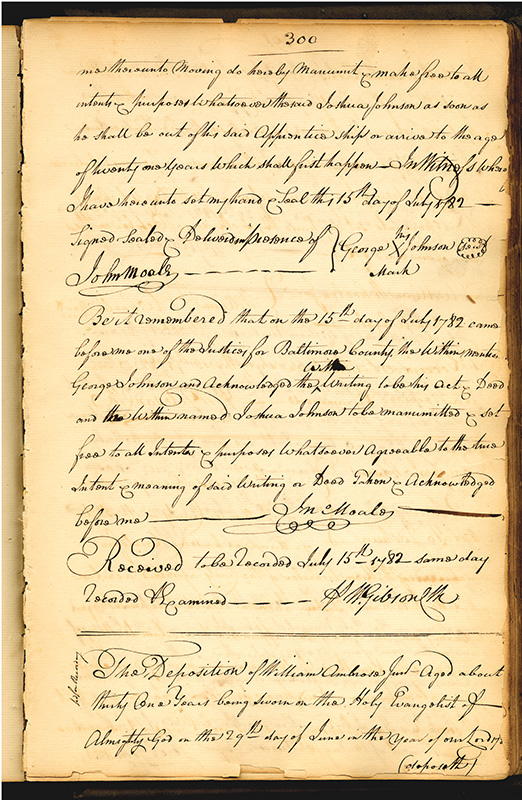 300
me thereunto Moving do hereby Manumit & make free to all
intents & purposes Whatsoever the said Joshua Johnson as soon as
he shall be out of his said Apprentice ship or arrive to the age
of twenty one Years Which shall first happen — In Witness Where
I have hereunto set my hand & Seal this 15th day of July 1782 —
Signed Sealed & Delivered in presence of } George his X Johnson (Seal)
John Moale — — — — — Mark
Be it remembered that on the 15th day of July 1782 came
before me one of the Justices for Baltimore County, the Within mention
George Johnson and Acknowledged the within Writing to be his Act & Deed
and the Within named Joshua Johnson to be manumitted & set
free to all Intents & purposes Whatsoever Agreeable to the true
Intent & meaning of said Writing or Deed Taken & Acknowledged
before me — Jno Moale
Received to be Recorded July 15th 1782 same day
Recorded & Examined — — — — Wm Gibson Clk
The Deposition of William Ambrose Junr Aged about
thirty One Years being Sworn on the Holy Evangelist of
Almighty God on the 29th day of June in the Year of our Lord
(deposeth)